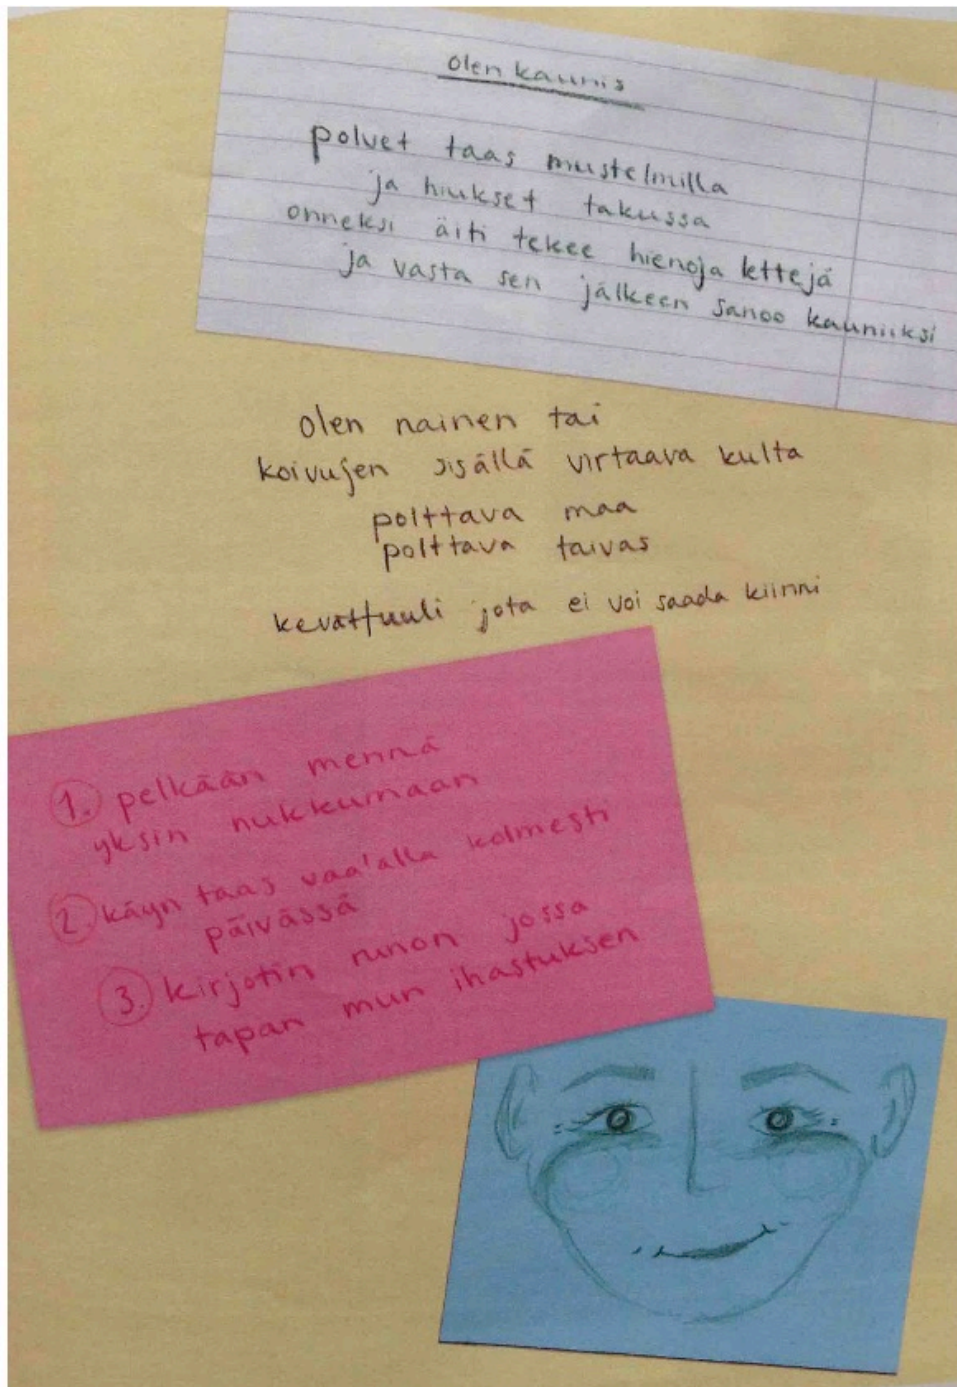 olen kaunis
polvet taas mustelmilla
ja hiukset takussa
onneksi äiti tekee hienoja lettejä
ja vasta sen jälkeen sanoo kauniiksi
olen nainen tai
koivujen sisällä virtaava kulta
polttava maa
polttava taivas
kevättuuli jota ei voi saada kiinni
1. pelkään mennä
yksin nukkumaan
2. käyn taas vaa'alla kolmesti
päivässä
3. kirjotin runon jossa
tapan mun ihastuksen